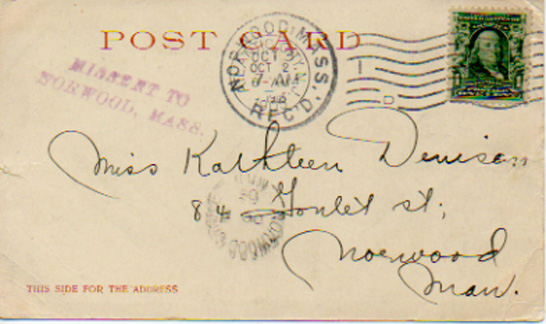 POST CARD
NORWOOD, MASS.
REC'D.
OCT 2
7-AM
MISSENT TO
NORWOOD, MASS.
D
Miss Kathleen Denison
84 Goulet st;
Norwood
Man.
THIS SIDE FOR THE ADDRESS